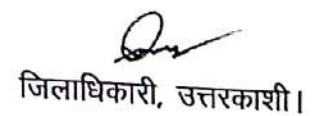 जिलाधिकारी, उत्तरकाशी।